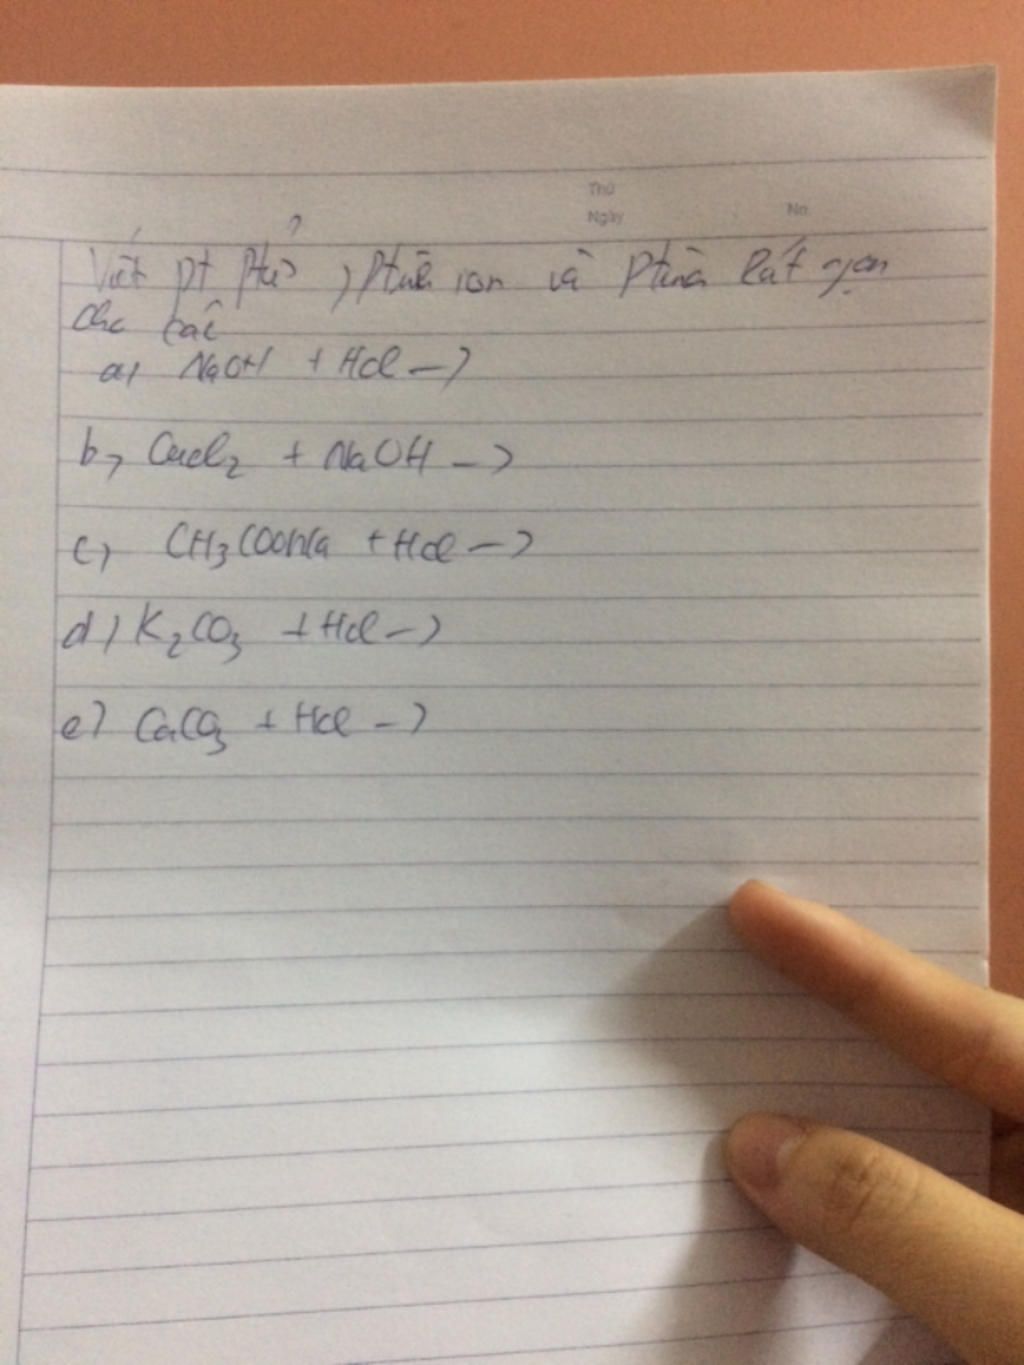 Thứ
Ngày No.
Viết pt ptử, Ptrình ion và Ptrình rút gọn
cho các
a) NaOH + HCl →
b, CuCl₂ + NaOH →
c) CH₃COONa + HCl →
d) K₂CO₃ + HCl →
e) CaCO₃ + HCl →